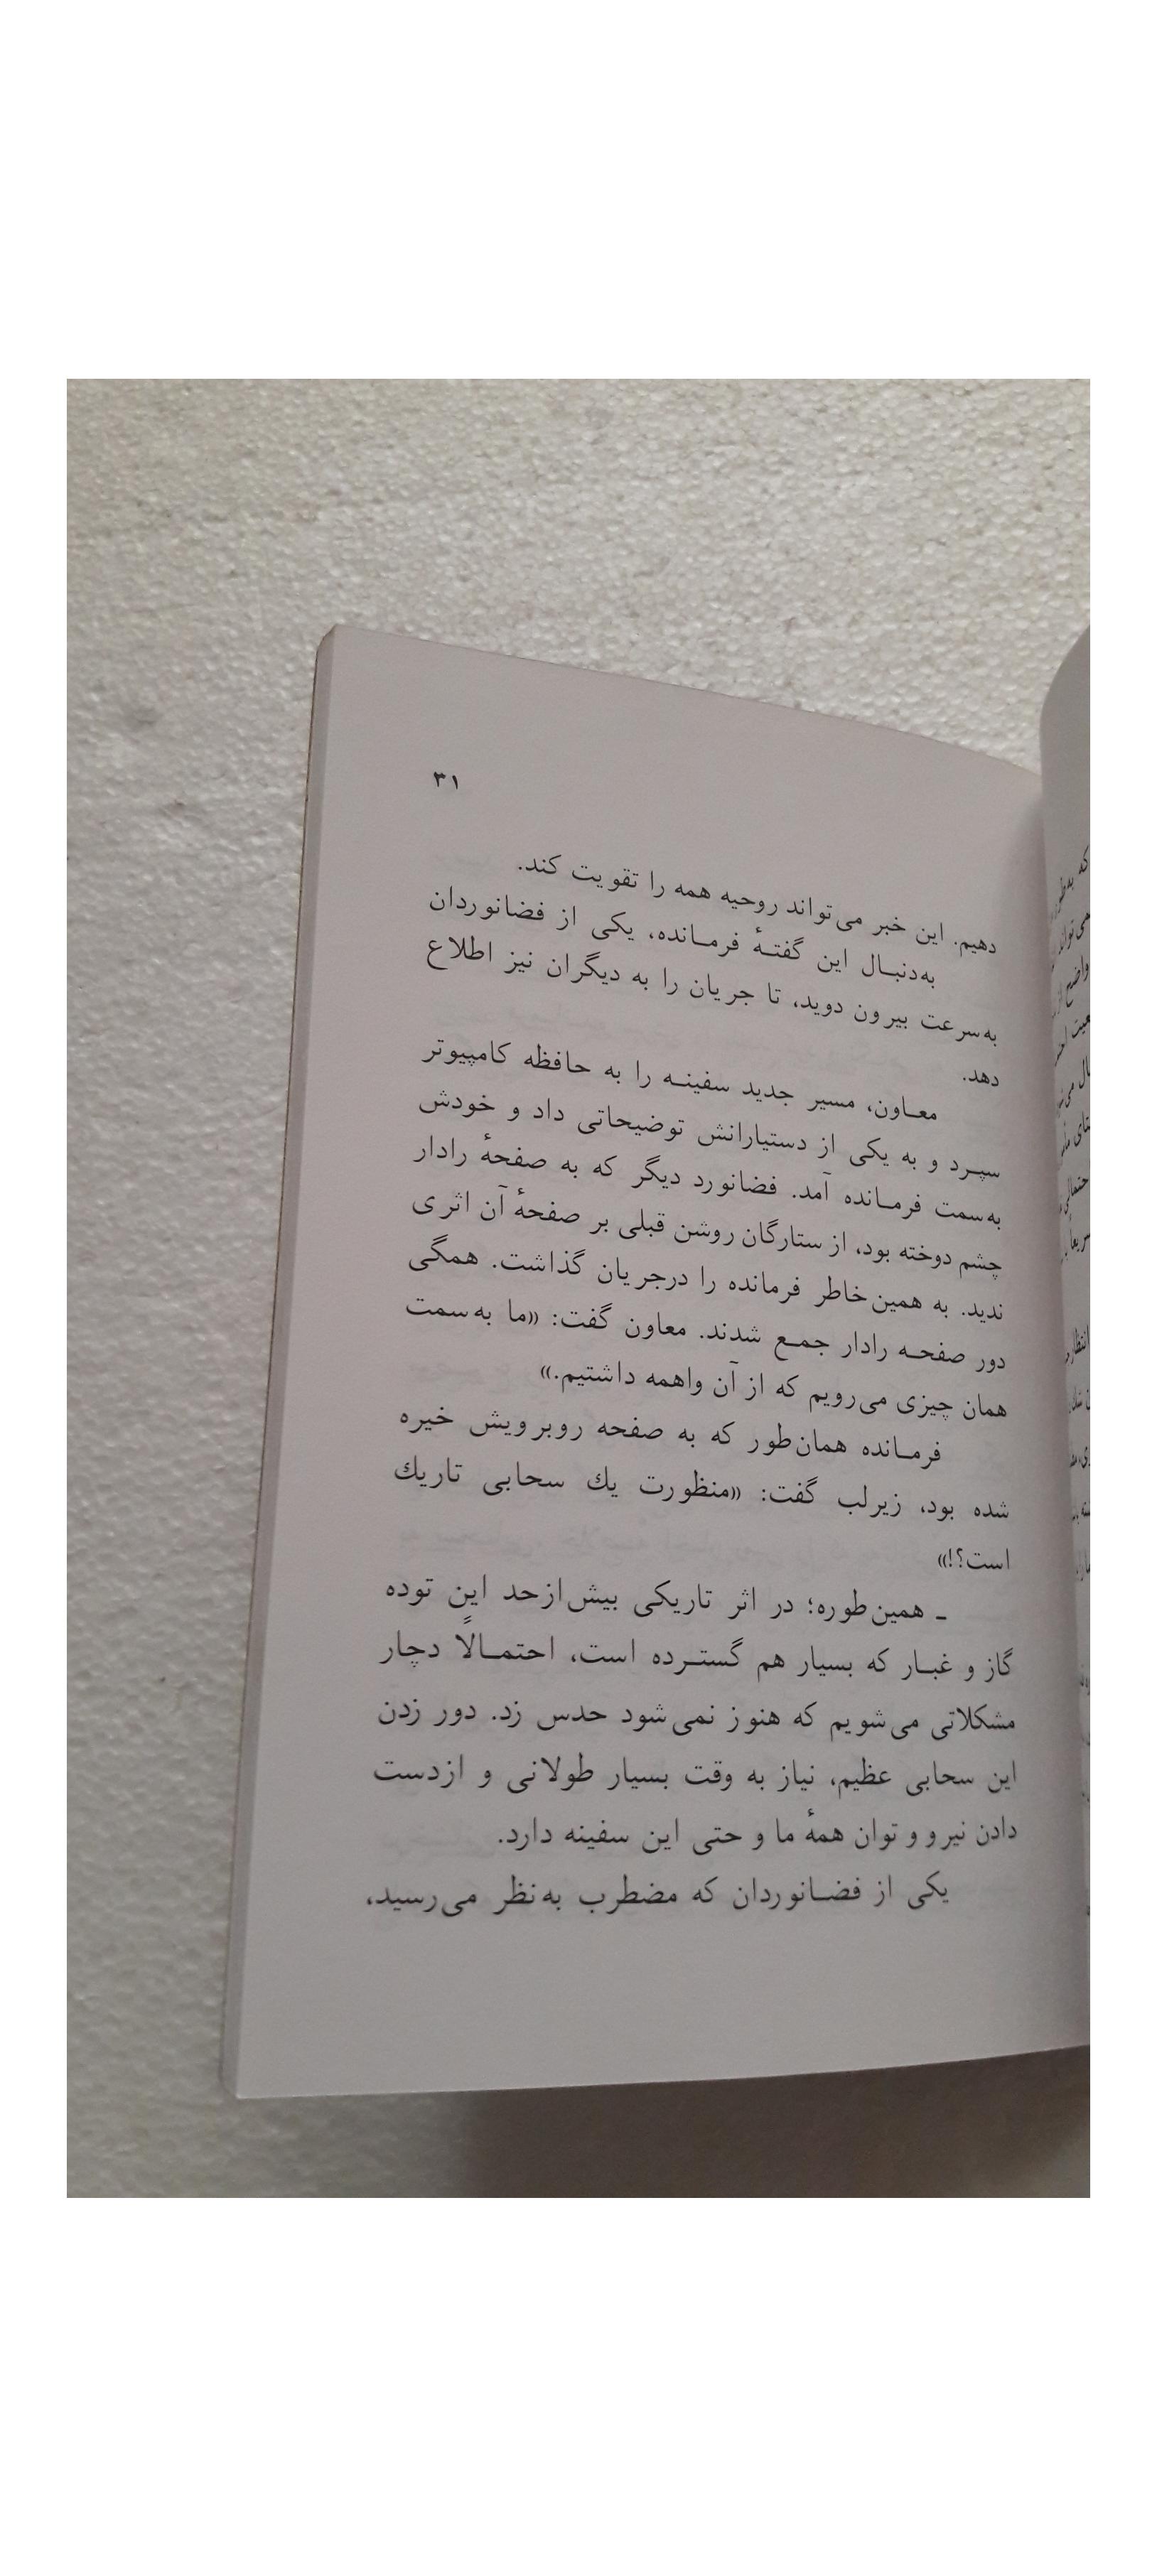 ۳۱
دهیم. این خبر می‌تواند روحیه همه را تقویت کند.
به‌دنبال این گفتهٔ فرمانده، یکی از فضانوردان
به‌سرعت بیرون دوید، تا جریان را به دیگران نیز اطلاع
دهد.
معاون، مسیر جدید سفینه را به حافظه کامپیوتر
سپرد و به یکی از دستیارانش توضیحاتی داد و خودش
به‌سمت فرمانده آمد. فضانورد دیگر که به صفحهٔ رادار
چشم دوخته بود، از ستارگان روشن قبلی بر صفحهٔ آن اثری
ندید. به همین‌خاطر فرمانده را درجریان گذاشت. همگی
دور صفحه رادار جمع شدند. معاون گفت: «ما به‌سمت
همان چیزی می‌رویم که از آن واهمه داشتیم.»
فرمانده همان‌طور که به صفحه روبرویش خیره
شده بود، زیرلب گفت: «منظورت یك سحابی تاریك
است؟!»
ـ همین‌طوره؛ در اثر تاریکی بیش‌ازحد این توده
گاز و غبار که بسیار هم گسترده است، احتمالاً دچار
مشکلاتی می‌شویم که هنوز نمی‌شود حدس زد. دور زدن
این سحابی عظیم، نیاز به وقت بسیار طولانی و ازدست
دادن نیرو و توان همهٔ ما و حتی این سفینه دارد.
یکی از فضانوردان که مضطرب به‌نظر می‌رسید،